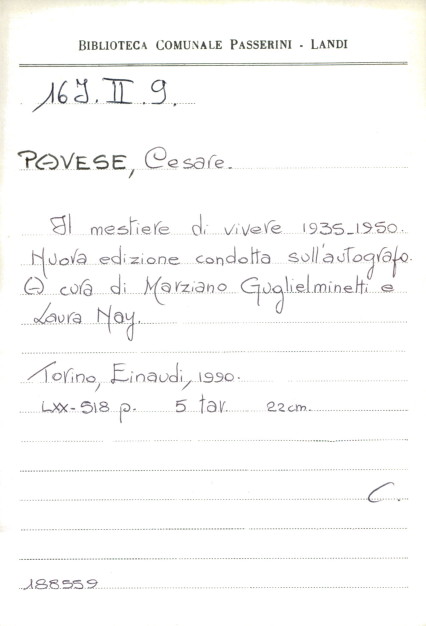 BIBLIOTECA COMUNALE PASSERINI - LANDI
16 J. II 9.
PAVESE, Cesare.
Il mestiere di vivere 1935-1950.
Nuova edizione condotta sull'autografo.
A cura di Marziano Guglielminetti e
Laura Nay.
Torino, Einaudi, 1990.
LXX-518 p. 5 tav. 22 cm.
C.
188559